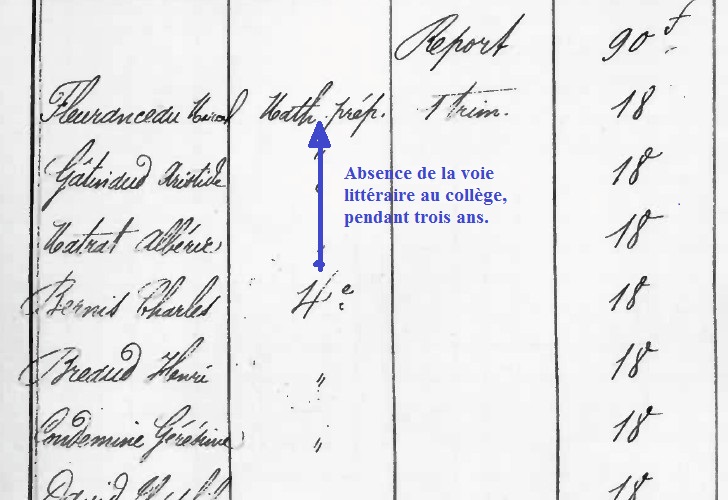 Report 90 f
Fleuranceau Marcel Math. prép. 1 trim. 18
Gâtinaud Aristide " 18
Matrat Albéric " 18
Absence de la voie
littéraire au collège,
pendant trois ans.
Bernis Charles 4e 18
Breaud Henri " 18
Condemine Gérésime " 18
David 18